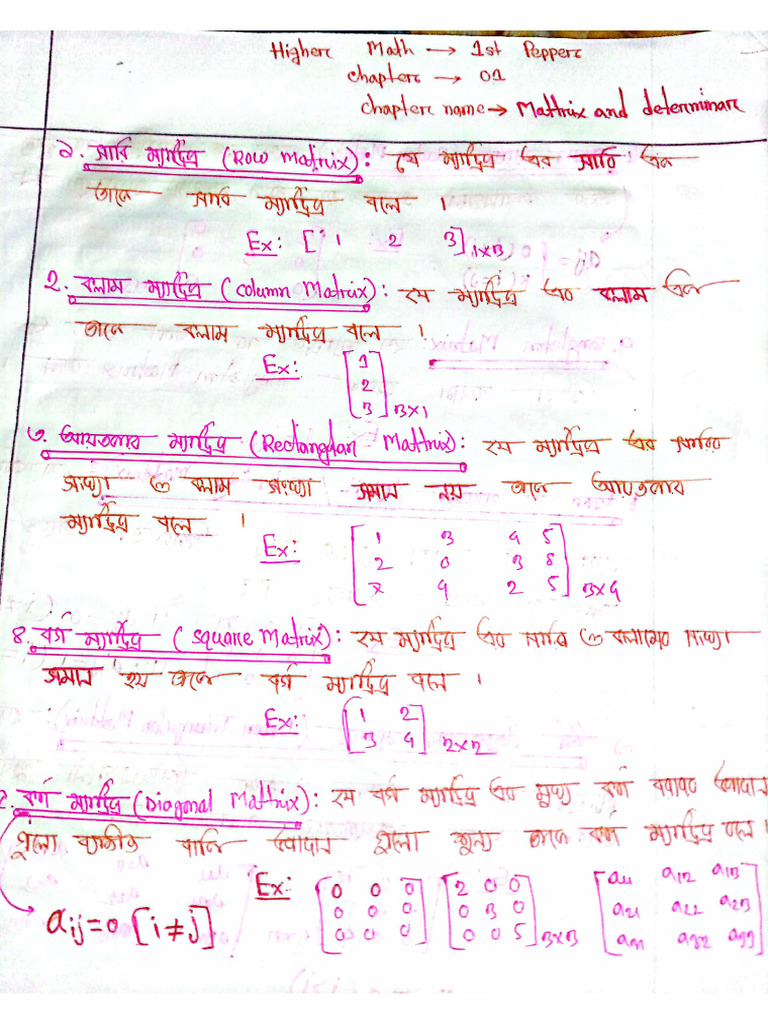 Higher Math → 1st Pepper
chapter → 01
chapter name → Mattrix and determinant
১. সারি ম্যাট্রিক্স (Row Matrix): যে ম্যাট্রিক্স এর সারি এক
তাকে সারি ম্যাট্রিক্স বলে ।
Ex: [ 1 2 3]1×3
২. কলাম ম্যাট্রিক্স (column Matrix): যে ম্যাট্রিক্স এর কলাম এক
তাকে কলাম ম্যাট্রিক্স বলে ।
Ex: [1
2
3]3×1
৩. আয়তাকার ম্যাট্রিক্স (Rectangular Mattrix): যে ম্যাট্রিক্স এর সারির
সংখ্যা ও কলাম সংখ্যা সমান নয় তাকে আয়তাকার
ম্যাট্রিক্স বলে ।
Ex: [1 3 4 5
2 0 3 8
x 4 2 5]3×4
৪. বর্গ ম্যাট্রিক্স (square Matrix): যে ম্যাট্রিক্স এর সারি ও কলামের সংখ্যা
সমান হয় তাকে বর্গ ম্যাট্রিক্স বলে ।
Ex: [1 2
3 4]2×2
কর্ণ ম্যাট্রিক্স (Diagonal Mattrix): যে বর্গ ম্যাট্রিক্স এর মুখ্য কর্ণ বরাবর উপাদান
গুলো ব্যতীত বাকি উপাদান গুলো শূন্য তাকে কর্ণ ম্যাট্রিক্স বলে ।
aij=0 [i≠j]
Ex: [0 0 0 [2 0 0 [a11 a12 a13
0 0 0 0 3 0 a21 a22 a23
0 0 0] 0 0 5]3×3 a31 a32 a33]